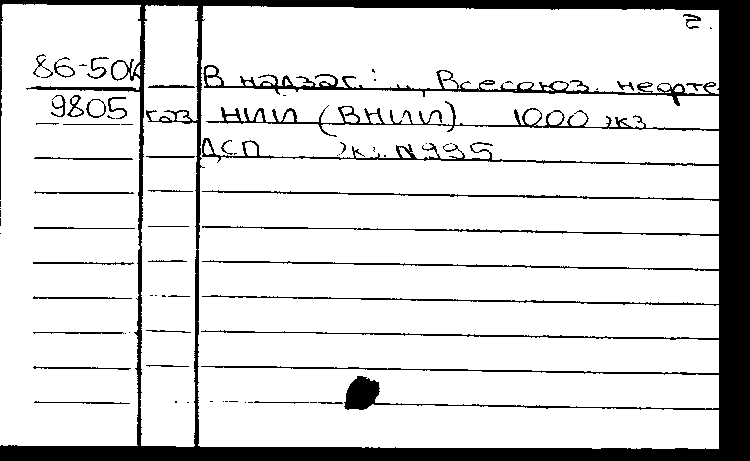 2.
86-50К В надзаг.: ..., Всесоюз. нефте
9805 газ. НИИ (ВНИИ). 1000 экз
ДСП Экз. N995